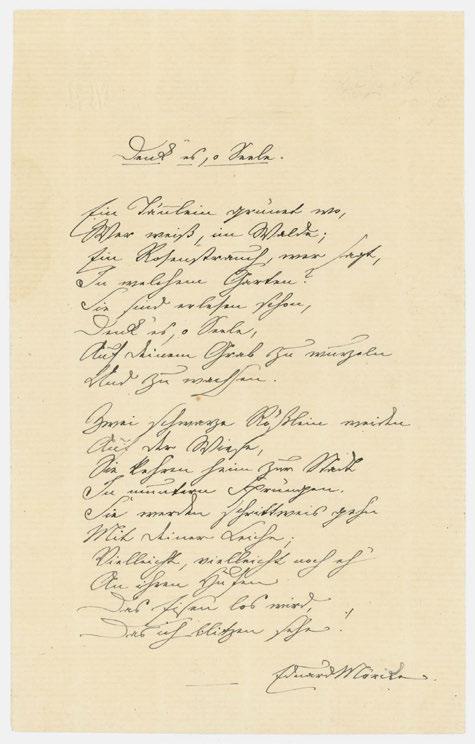 Denk' es, o Seele.
Ein Tännlein grünet wo,
Wer weiß, im Walde;
Ein Rosenstrauch, wer sagt,
In welchem Garten?
Sie sind erlesen schon,
Denk' es, o Seele,
Auf deinem Grab zu wurzeln
Und zu wachsen.
Zwei schwarze Rößlein weiden
Auf der Wiese,
Sie kehren heim zur Stadt
In muntern Sprüngen.
Sie werden schrittweis gehn
Mit deiner Leiche;
Vielleicht, vielleicht noch eh'
An ihren Hufen
Das Eisen los wird,
Das ich blitzen sehe!
Eduard Mörike.